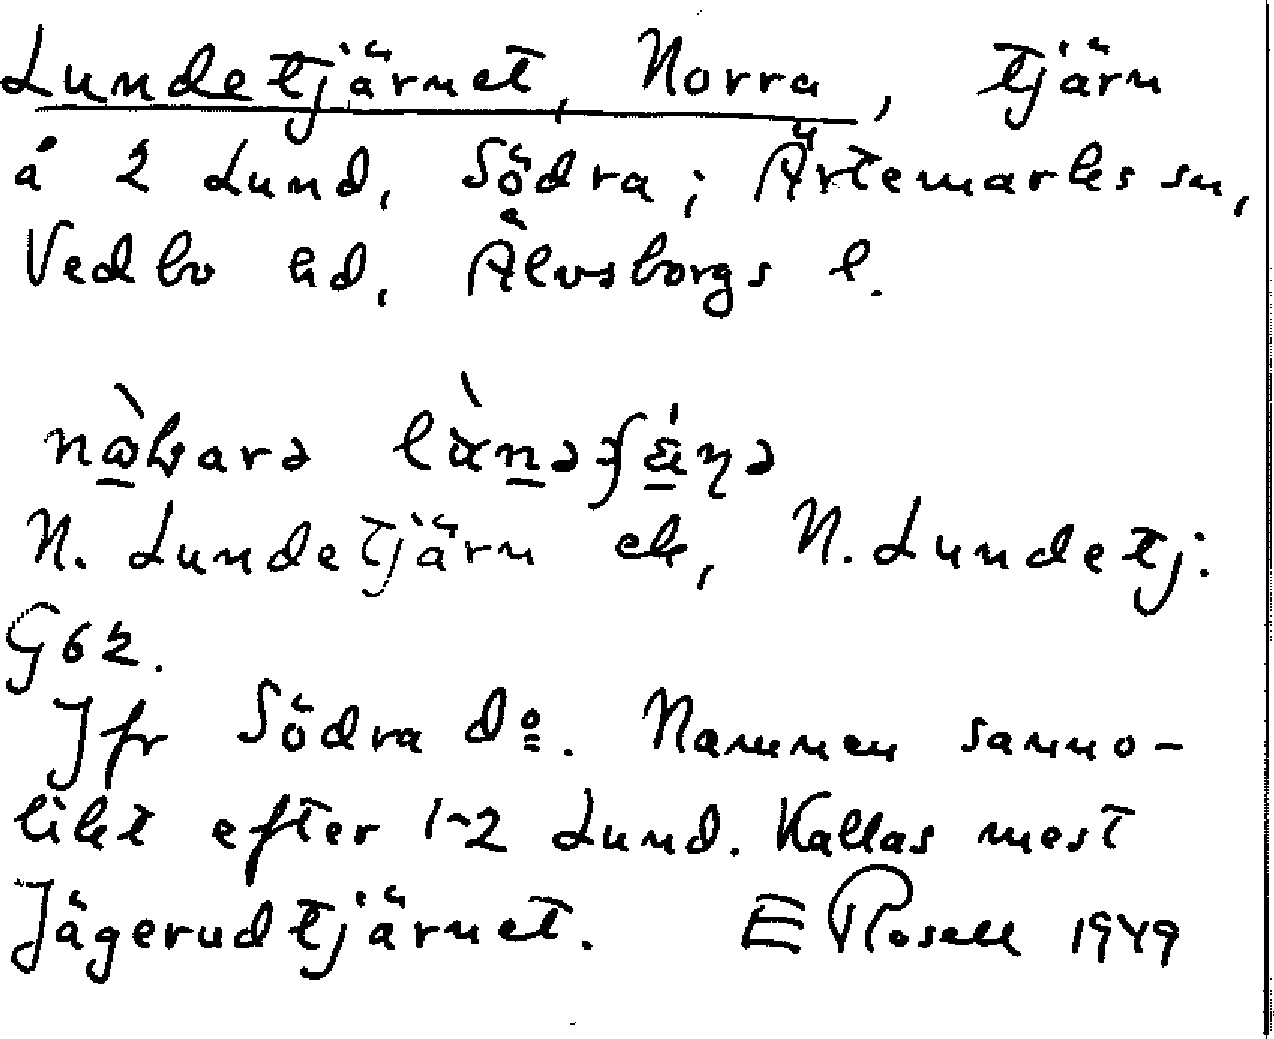 Lundetjärnet, Norra, tjärn
å 2 Lund, Södra; Ärtemarks sn,
Vedbo hd, Älvsborgs l.
N. Lundetjärn ek, N. Lundetj:
G62.
Jfr Södra dº. Namnen sanno-
likt efter 1-2 Lund. Kallas mest
Jägerudtjärnet. E Rosell 1949